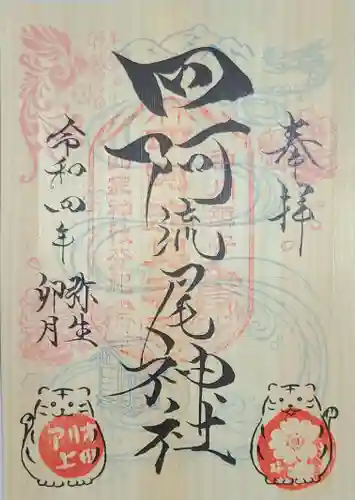 奉拝
四阿流尾神社
令和四年
弥生
卯月